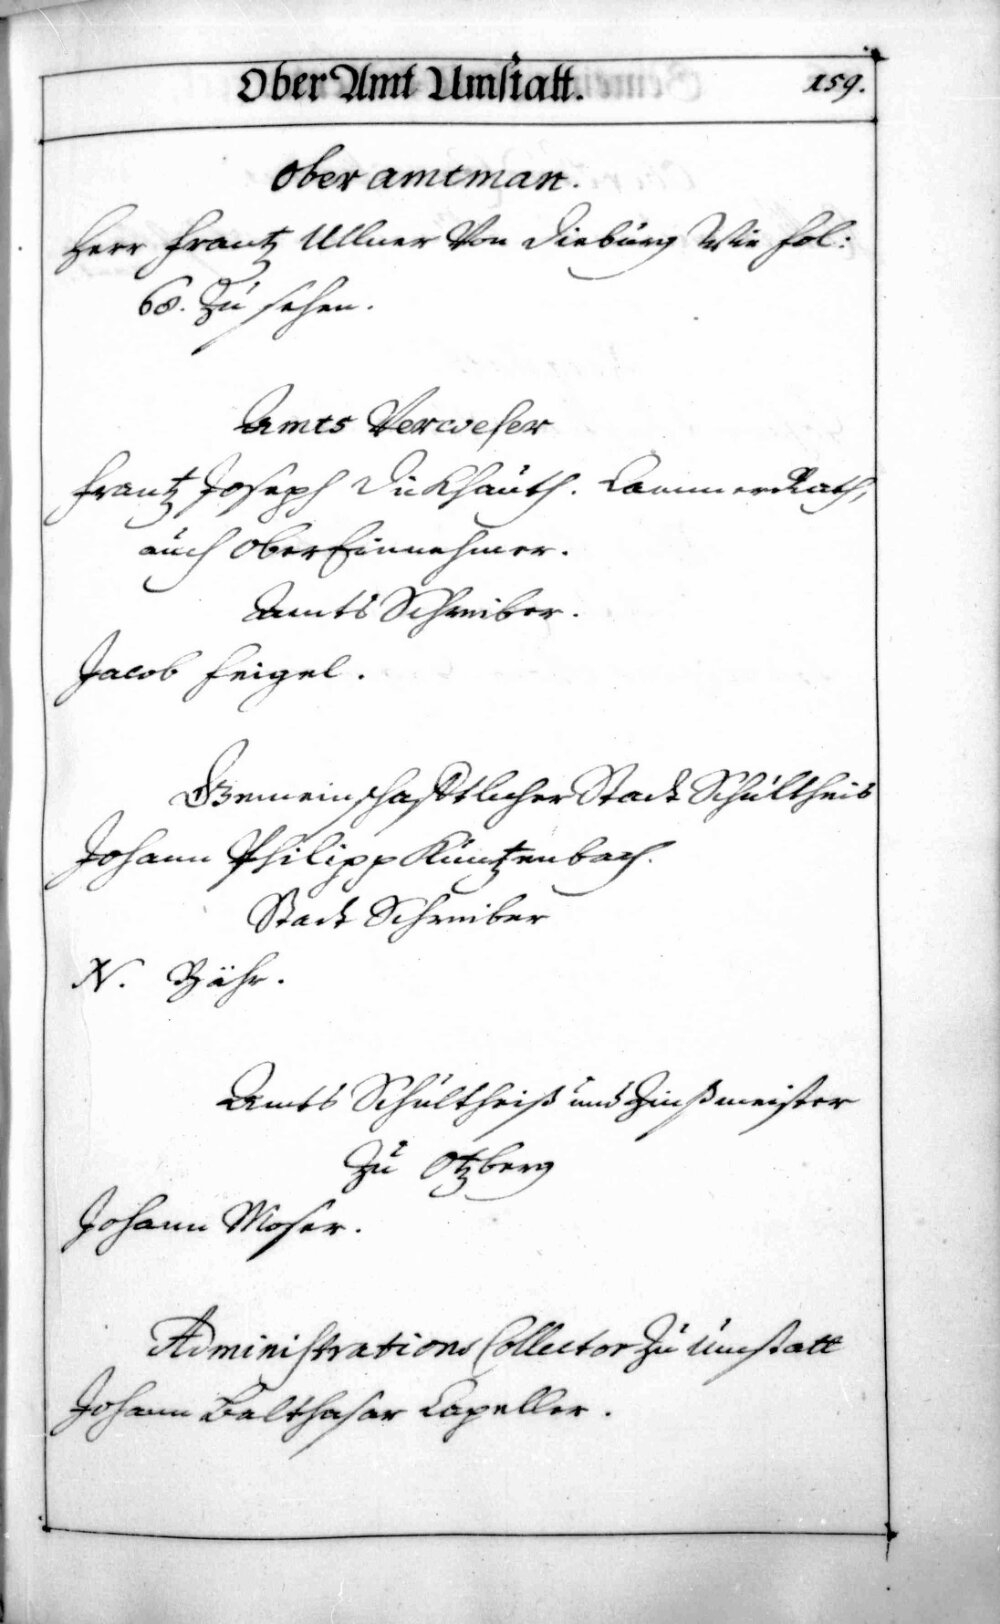 Ober Amt Umstatt.
159.
Ober amtman.
Herr Frantz Ullner Von Dieburg Wie fol:
68. Zu sehen.
Amts Verweser
Frantz Joseph Dickhauth. CammerRath,
auch OberEinnehmer.
Ambts Schreiber.
Jacob Feigel.
Gemeinschafftlicher Stadt Schultheis
Johann Philipp Küntzenbach.
Stadt Schreiber
N. Bähr.
Ambts Schultheiß und Zinßmeister
Zu Otzberg
Johann Moser.
Administrations Collector Zu Umstatt
Johann Balthasar Capeller.